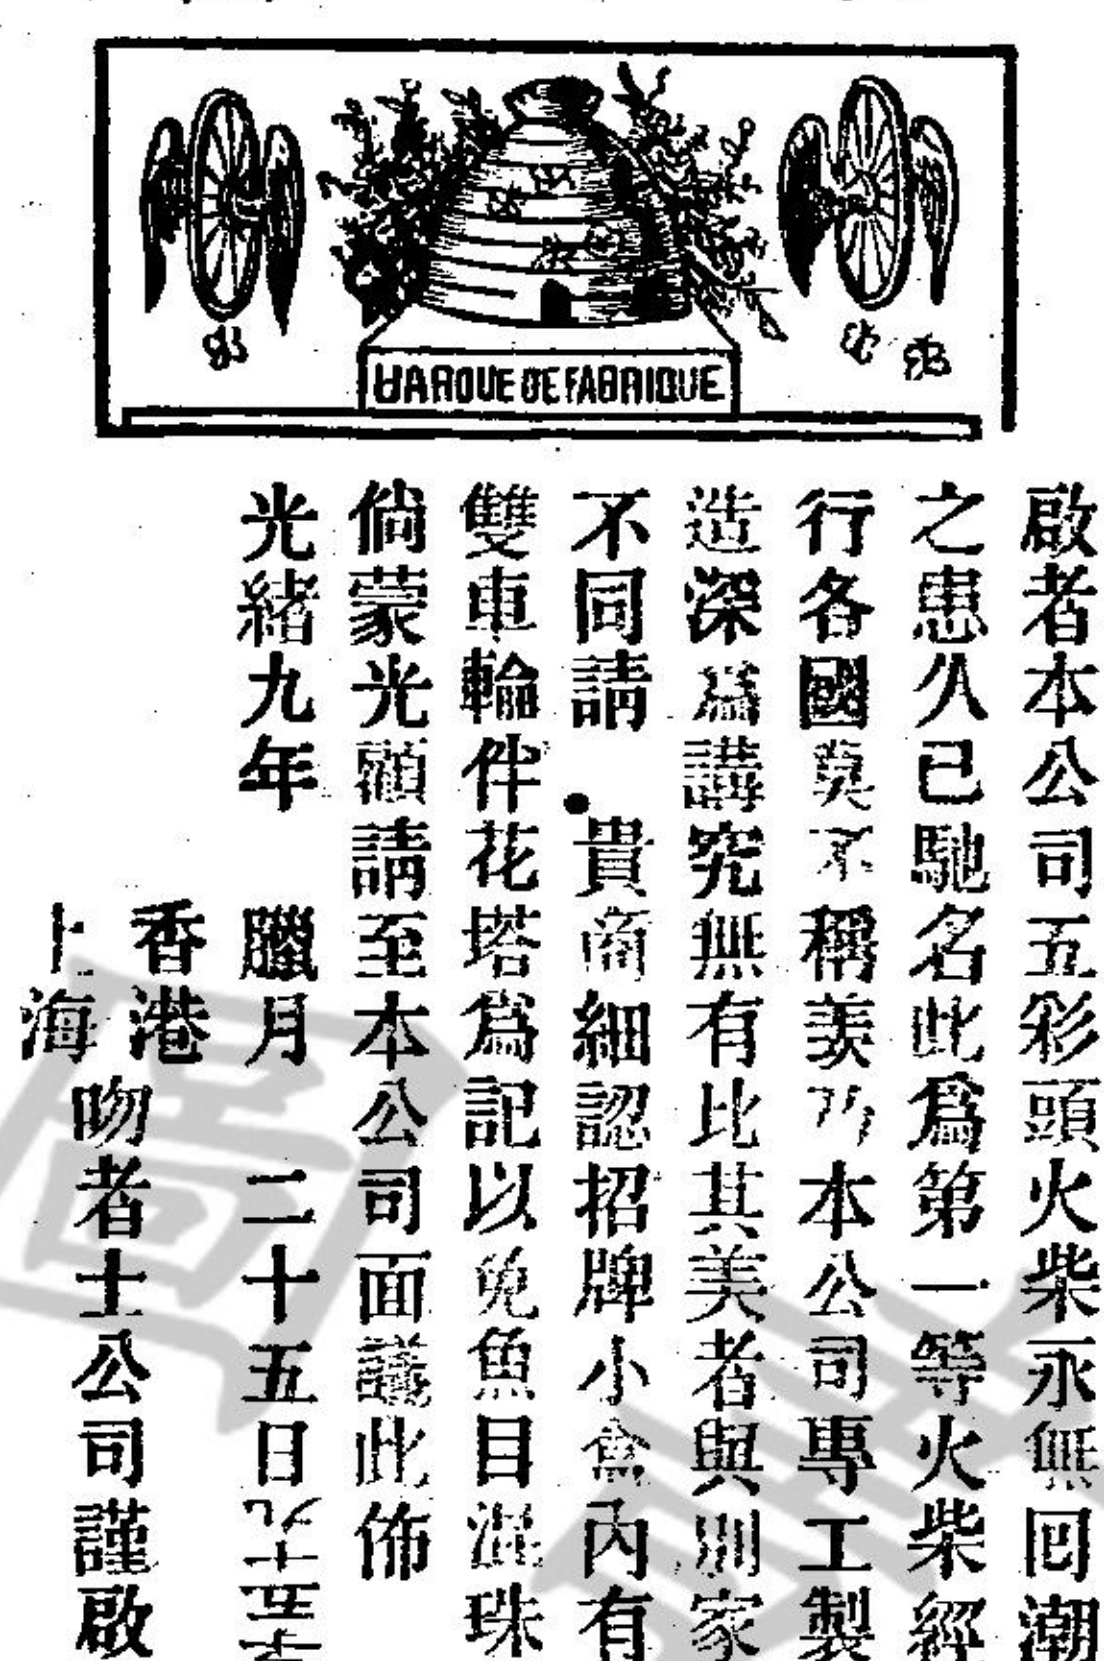 MARQUE DE FABRIQUE
啟者本公司五彩頭火柴永無囘潮
之患久已馳名此爲第一等火柴經
行各國莫不稱羨乃本公司專工製
造深爲講究無有比其美者與別家
不同請 貴商細認招牌小盒內有
雙車輪伴花塔爲記以免魚目混珠
倘蒙光顧請至本公司面議此佈
光緒九年 臘月 二十五日
香港
上海
吻者士公司謹啟